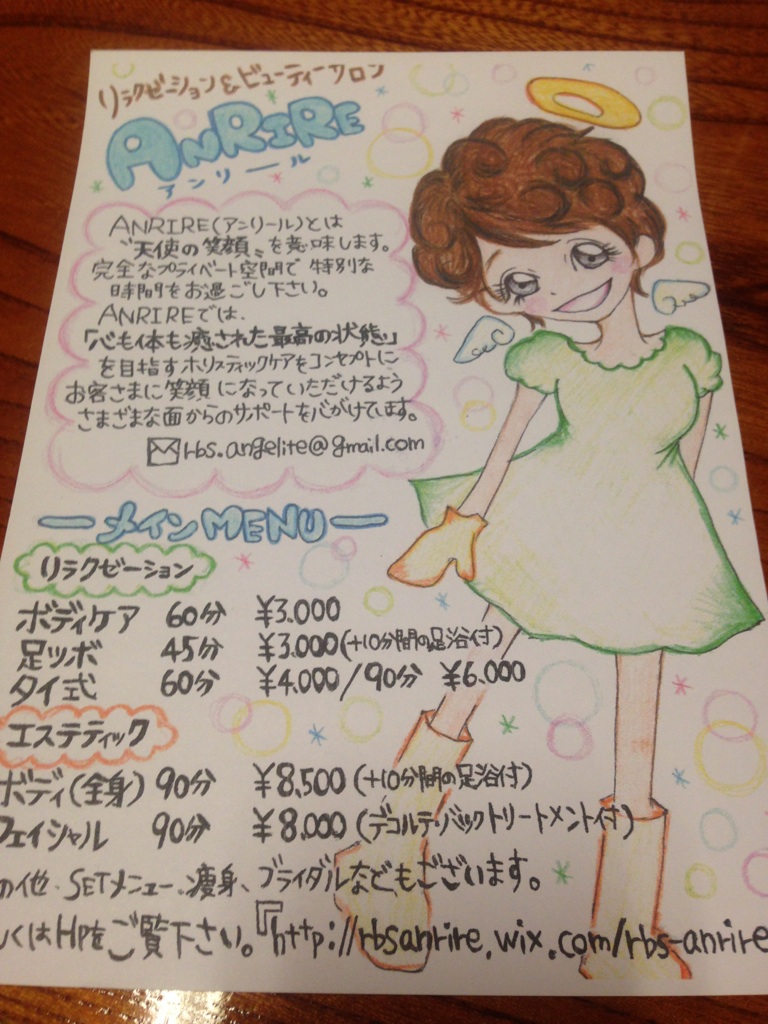 リラクゼーション&ビューティーサロン
ANRIRE
アンリール
ANRIRE(アンリール)とは
〝天使の笑顔〟を意味します。
完全なプライベート空間で 特別な
時間をお過ごし下さい。
ANRIREでは、
「心も体も癒された最高の状態」
を目指すホリスティックケアをコンセプトに
お客さまに笑顔になっていただけるよう
さまざまな面からのサポートを心がけています。
✉rbs.angelite@gmail.com
ーメインMENUー
リラクゼーション
ボディケア 60分 ¥3.000
足ツボ 45分 ¥3.000(+10分間の足浴付)
タイ式 60分 ¥4.000/90分 ¥6.000
エステティック
ボディ(全身) 90分 ¥8,500(+10分間の足浴付)
フェイシャル 90分 ¥8.000(デコルテ・バックトリートメント付)
の他、SETメニュー、痩身、ブライダルなどもございます。
しくはHPをご覧下さい。『http://rbsanrire.wix.com/rbs-anrire